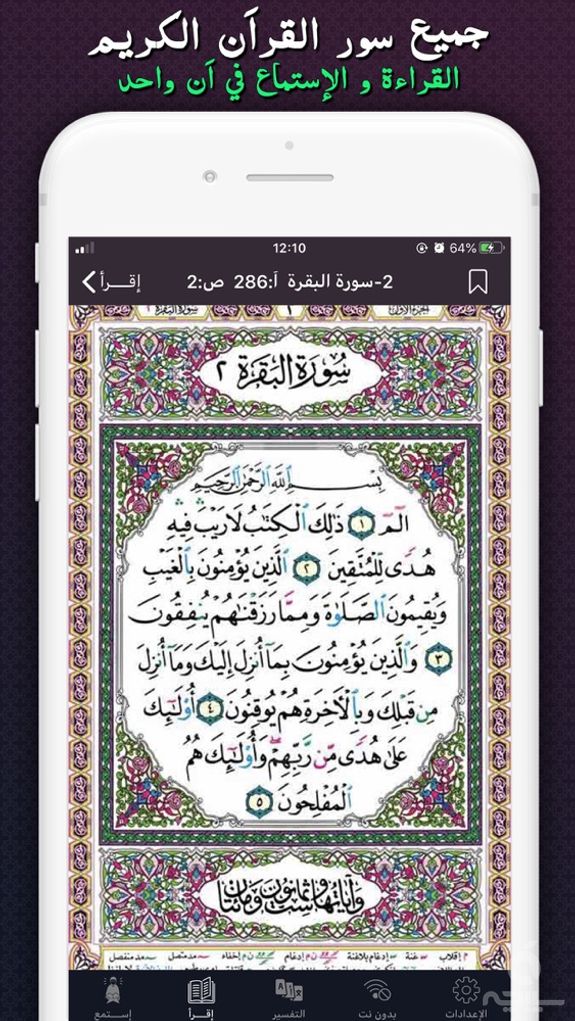 جميع سور القرآن الكريم
القراءة و الإستماع في آن واحد
12:10
64%
إقــرأ
2-سورة البقرة أ:286 ص:2
سُورَةُ الْبَقَرَةِ ٢
بِسْمِ ٱللَّهِ ٱلرَّحْمَٰنِ ٱلرَّحِيمِ
الٓمٓ ١ ذَٰلِكَ ٱلْكِتَٰبُ لَا رَيْبَ فِيهِ
هُدًى لِّلْمُتَّقِينَ ٢ ٱلَّذِينَ يُؤْمِنُونَ بِٱلْغَيْبِ
وَيُقِيمُونَ ٱلصَّلَوٰةَ وَمِمَّا رَزَقْنَٰهُمْ يُنفِقُونَ
٣ وَٱلَّذِينَ يُؤْمِنُونَ بِمَآ أُنزِلَ إِلَيْكَ وَمَآ أُنزِلَ
مِن قَبْلِكَ وَبِٱلْأَخِرَةِ هُمْ يُوقِنُونَ ٤ أُو۟لَٰٓئِكَ
عَلَىٰ هُدًى مِّن رَّبِّهِمْ وَأُو۟لَٰٓئِكَ هُمُ
ٱلْمُفْلِحُونَ ٥
وآياتها ست وثمانون ومائتان
إقلاب غنة إدغام بلاغنة إدغام إخفاء مد متصل مد منفصل
إستمع
إقـرأ
التفسير
بدون نت
الإعدادات